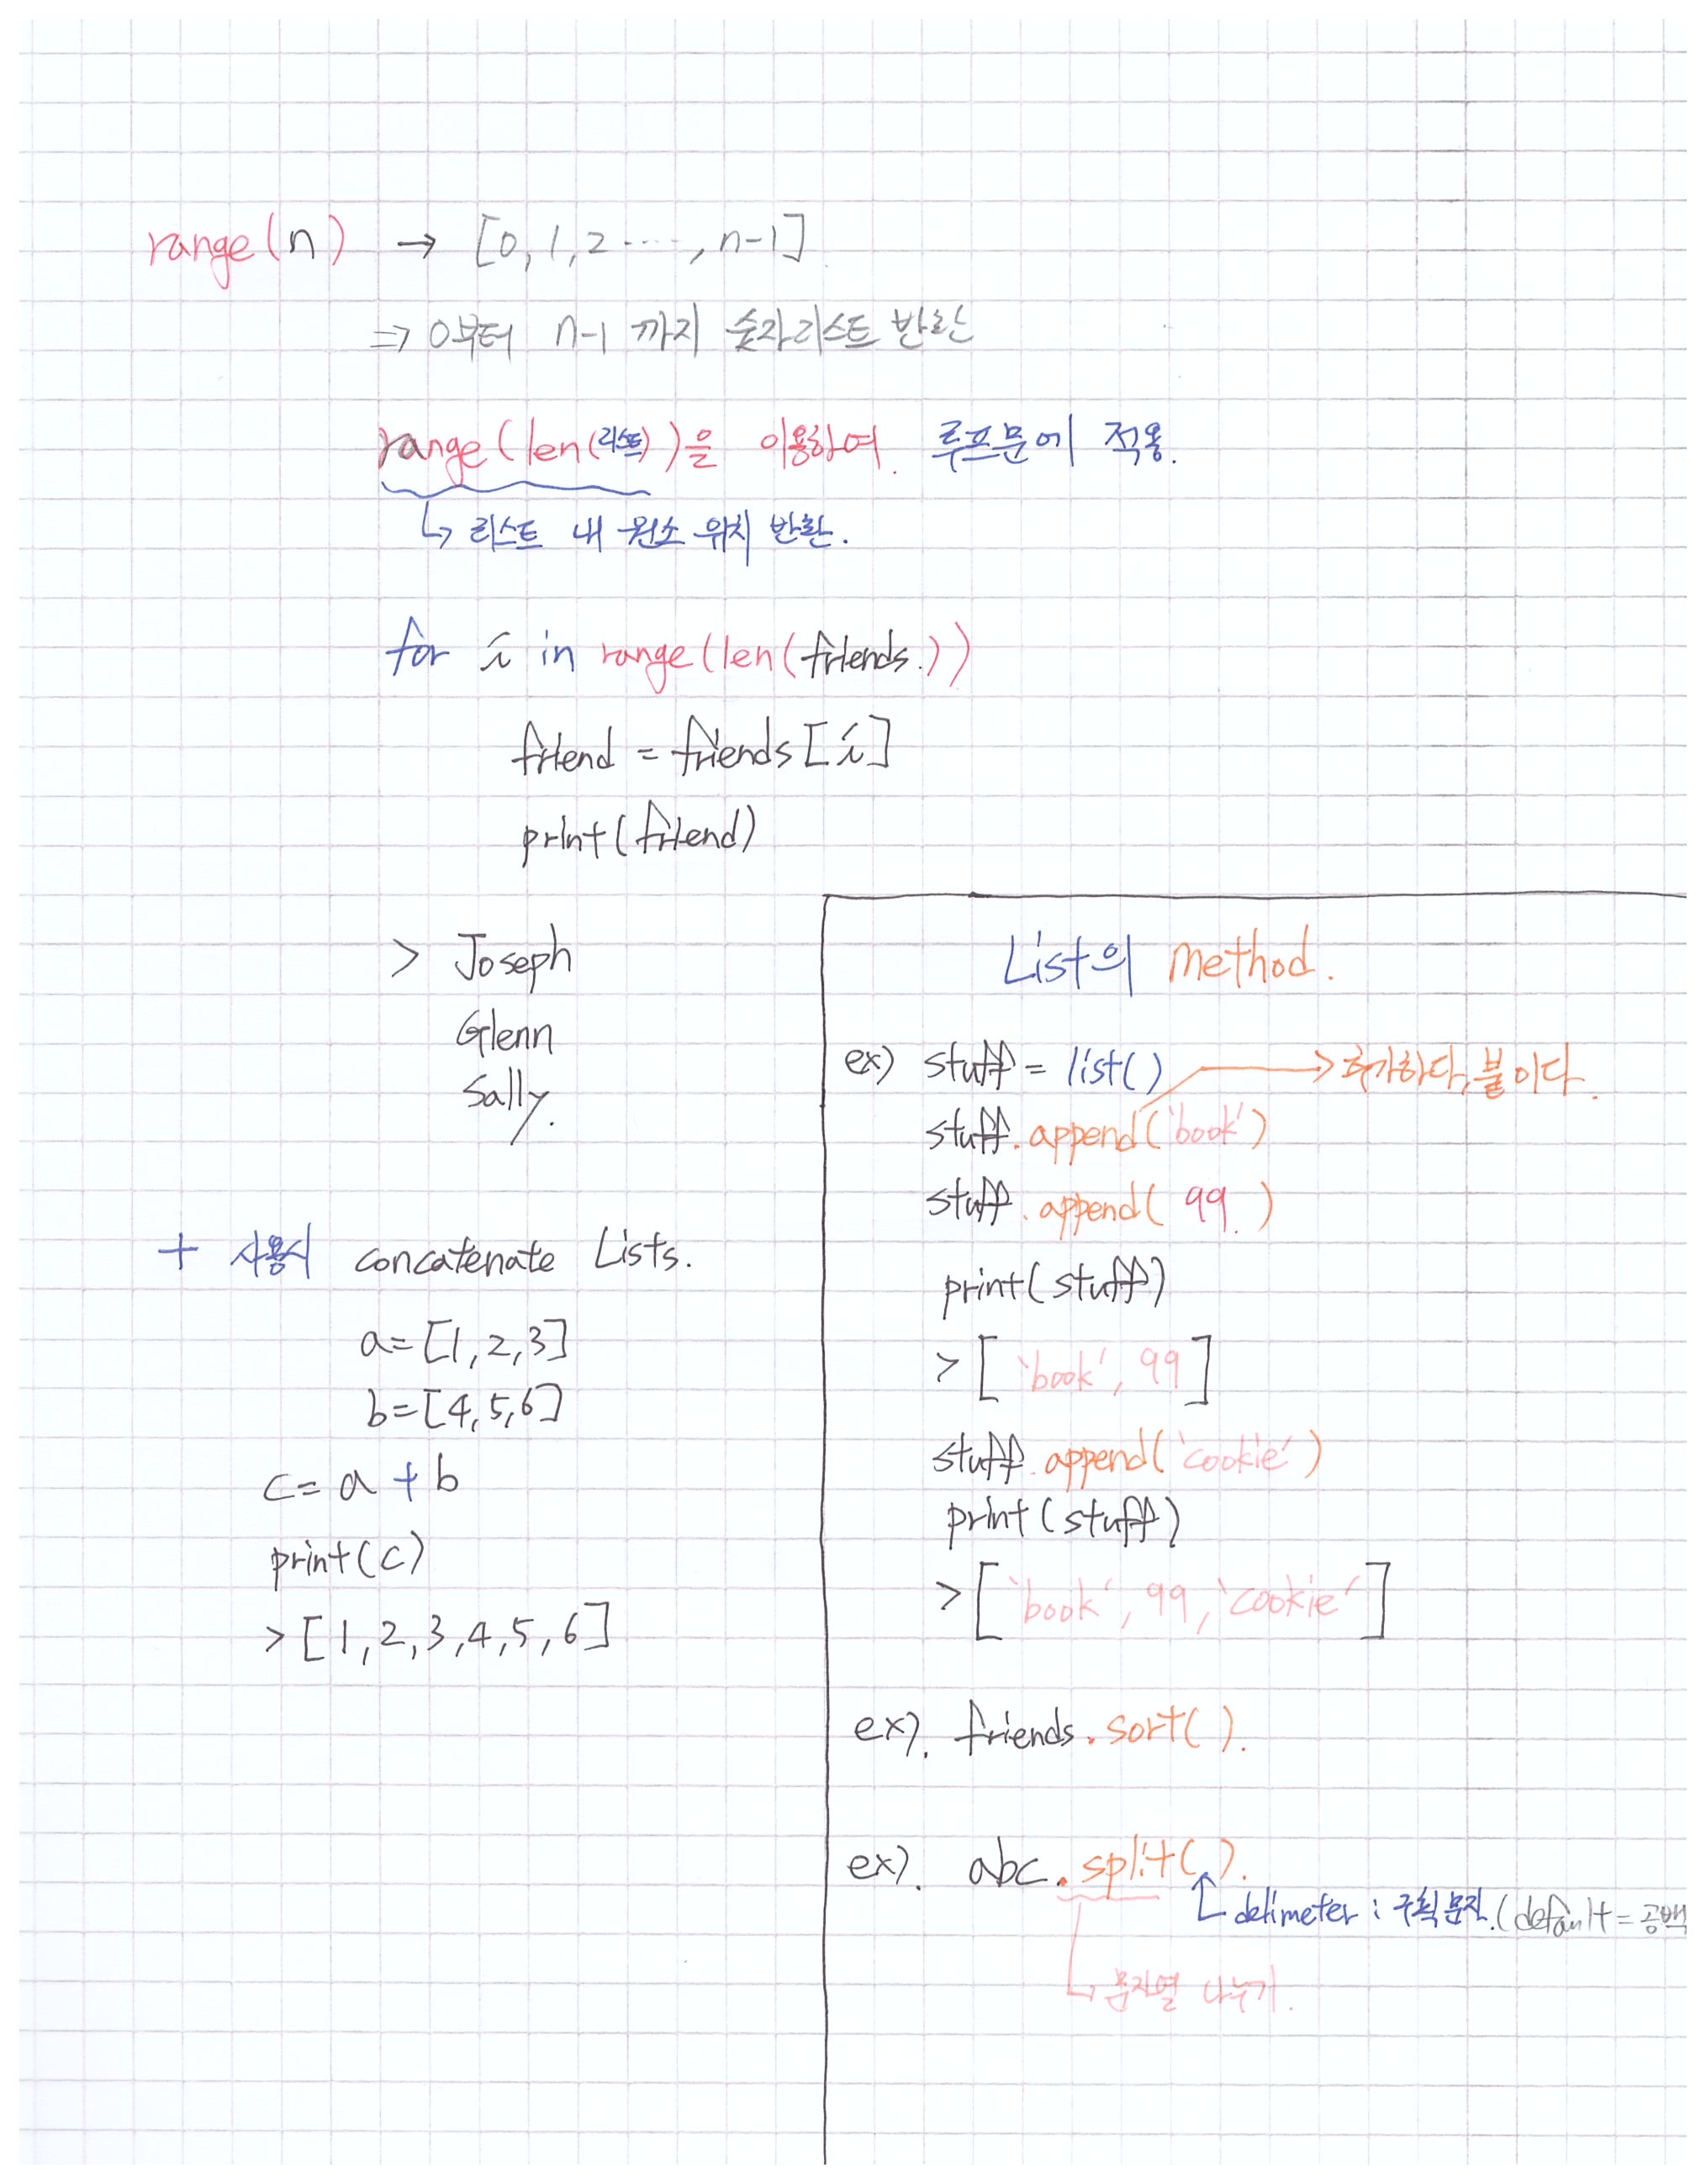 range(n) → [0, 1, 2 ‥‥, n-1]
⇒ 0부터 n-1 까지 숫자리스트 반환
range(len(리스트))을 이용하여 루프문에 적용.
↳ 리스트 내 원소 위치 반환.
for i in range(len(friends))
friend = friends[i]
print(friend)
> Joseph
Glenn
Sally.
+ 사용시 concatenate Lists.
a=[1,2,3]
b=[4,5,6]
c= a + b
print(c)
>[1,2,3,4,5,6]
List의 method.
ex) stuff = list() → 추가하다, 붙이다.
stuff.append('book')
stuff.append( 99 )
print(stuff)
> ['book', 99]
stuff.append('cookie')
print(stuff)
>['book', 99, 'cookie']
ex). friends.sort().
ex). abc.split().
delimeter : 구획 문자. (default = 공백
↳ 문자열 나누기.